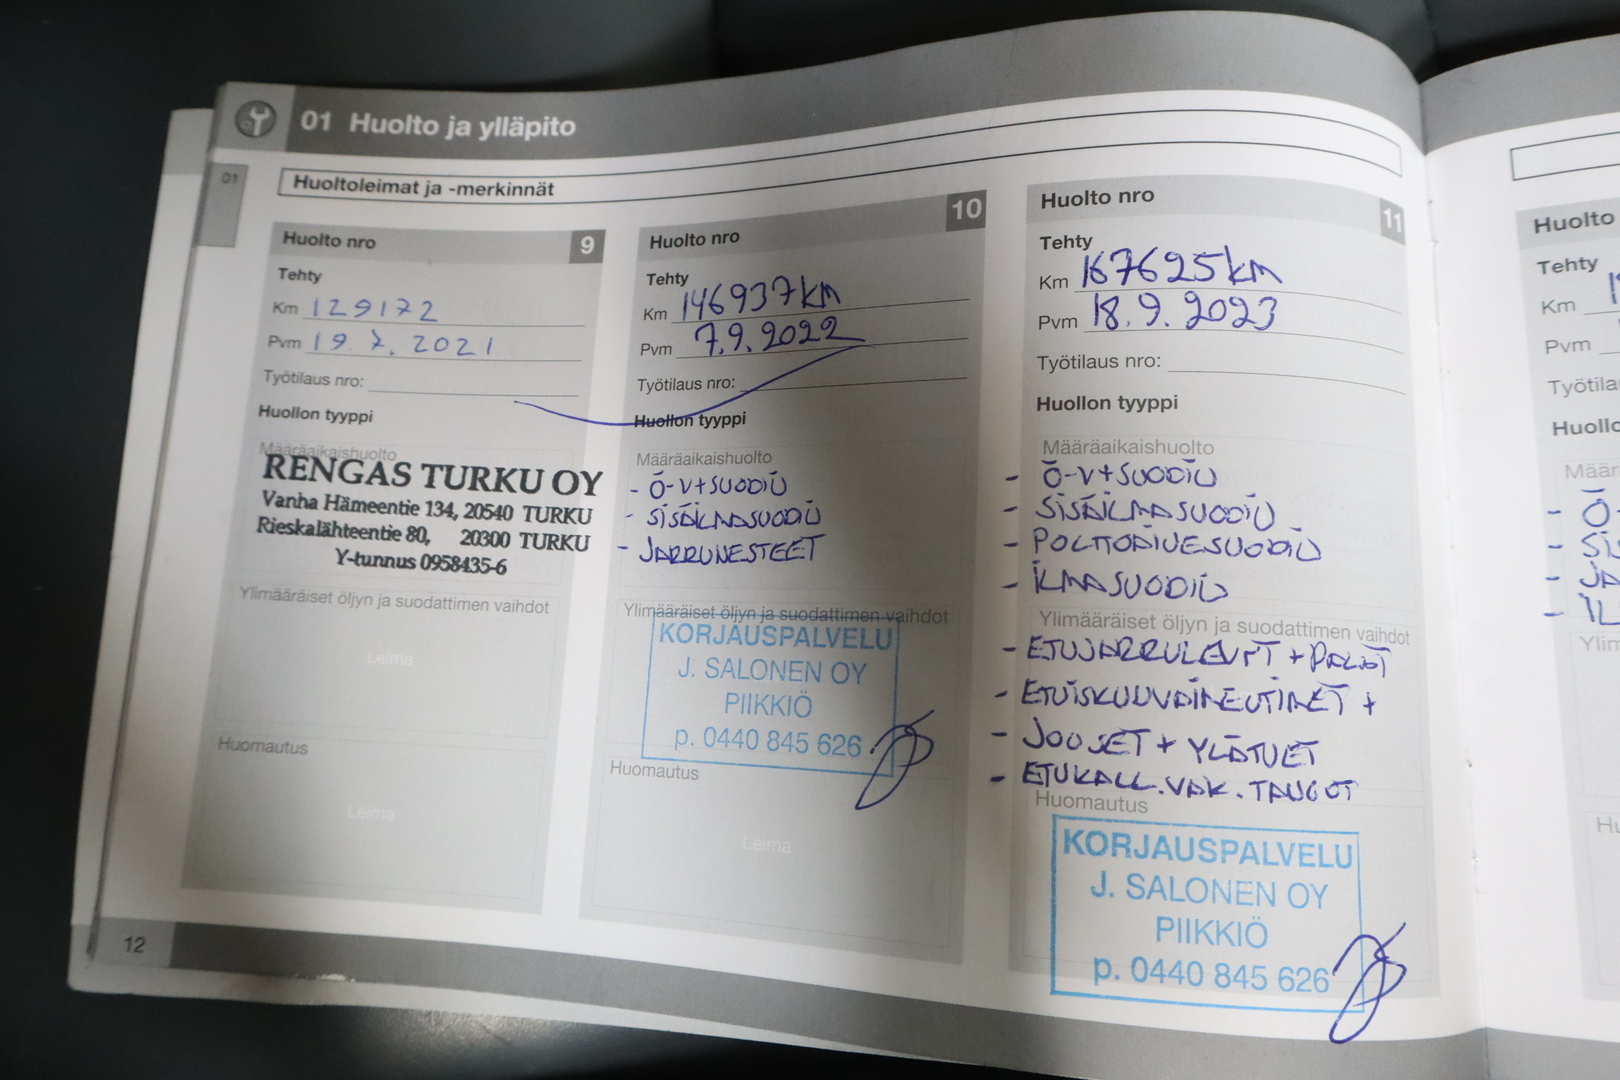 01 Huolto ja ylläpito
01
Huoltoleimat ja -merkinnät
Huolto nro 9
Tehty
Km 129172
Pvm 19.7.2021
Työtilaus nro:
Huollon tyyppi
Määräaikaishuolto
RENGAS TURKU OY
Vanha Hämeentie 134, 20540 TURKU
Rieskalähteentie 80, 20300 TURKU
Y-tunnus 0958435-6
Ylimääräiset öljyn ja suodattimen vaihdot
Leima
Huomautus
Leima
12
Huolto nro 10
Tehty
Km 146937km
Pvm 7.9.2022
Työtilaus nro:
Huollon tyyppi
Määräaikaishuolto
- Ö-V+SUODIN
- SISÄILMASUODIN
- JARRUNESTEET
Ylimääräiset öljyn ja suodattimen vaihdot
KORJAUSPALVELU
J. SALONEN OY
PIIKKIÖ
p. 0440 845 626
Huomautus
Leima
Huolto nro 11
Tehty
Km 167625km
Pvm 18.9.2023
Työtilaus nro:
Huollon tyyppi
Määräaikaishuolto
- Ö-V+SUODIN
- SISÄILMASUODIN
- POLTTOAINESUODIN
- ILMASUODIN
Ylimääräiset öljyn ja suodattimen vaihdot
- ETUJARRULEVYT + PALAT
- ETUISKUNVAIMENTIMET +
- JOUSET + YLÄTUET
- ETUKALL.VAK.TANGOT
Huomautus
KORJAUSPALVELU
J. SALONEN OY
PIIKKIÖ
p. 0440 845 626
Huolto
Tehty
Km
Pvm